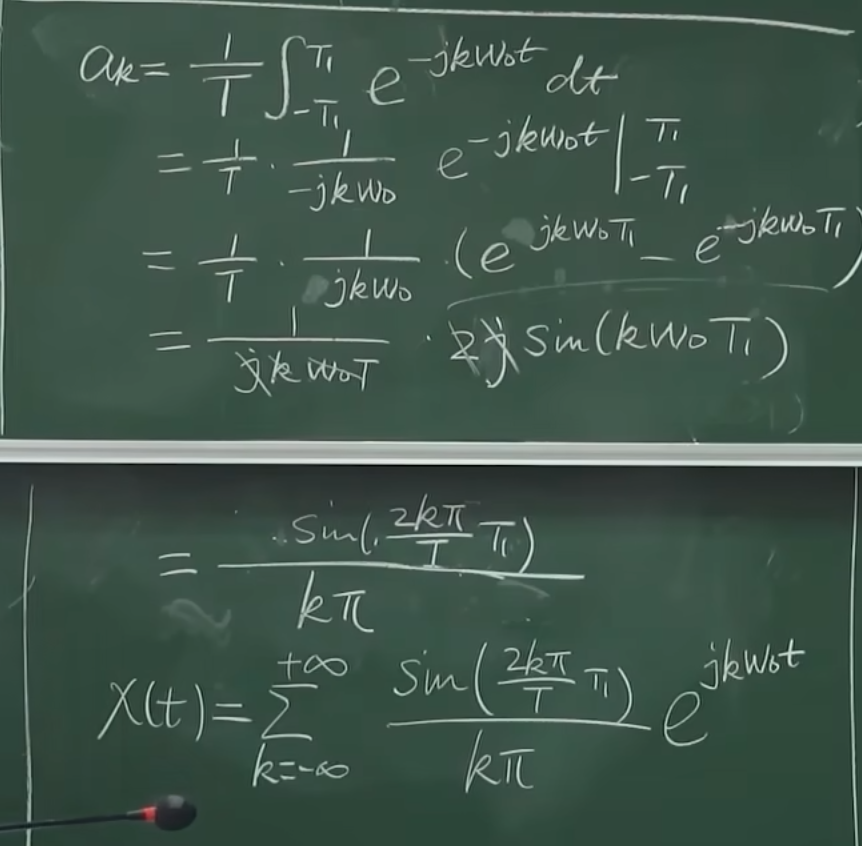 aₖ = 1/T ∫_{-T₁}^{T₁} e^{-jkω₀t} dt
= 1/T · 1/(-jkω₀) e^{-jkω₀t} |_{-T₁}^{T₁}
= 1/T · 1/(jkω₀) · (e^{jkω₀T₁} - e^{-jkω₀T₁})
= 1/(jkω₀T) · 2j sin(kω₀T₁)
= sin(2kπ/T T₁)/(kπ)
X(t) = Σ_{k=-∞}^{+∞} sin(2kπ/T T₁)/(kπ) e^{jkω₀t}